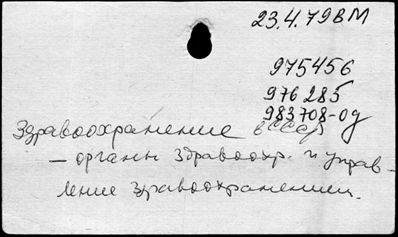 23.4.79ВМ
975456
976285
983708-од
Здравоохранение в СССР
— органы здравоохр. и управ-
ление здравоохранением.